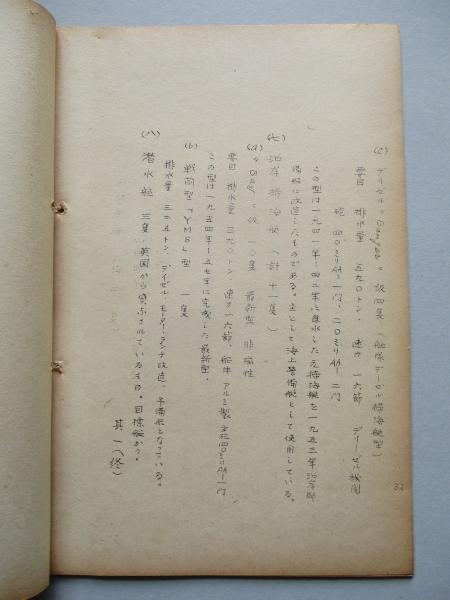 32
(c) ディーゼル 級四隻（船隊デーゼル掃海艇型）
要目 排水量 五九〇トン、速力 一六節 ディーゼル機関
砲 四〇ミリAA一門、二〇ミリAA 二門
この型は一九四一年―四二年に進水した 掃海艇を一九五三年沿岸
備艇に改造したものである。主として海上警備艇として使用している。
(七) 沿岸掃海艇（計十一隻）
(a) 級 一〇隻 最新型 非磁性
要目 排水量 三九〇トン、速力一六節、船体 アルミ製 四〇ミリAA一門
この型は一九五四年―五七年に完成した最新型。
(b) 戦前型「YMS」型 一隻
排水量 トン、ディゼル、モーターランチ改造、予備艇となっている。
(八) 潜水艦 三隻 英国から貸与されているもの。目標艦かう。
其一（終）